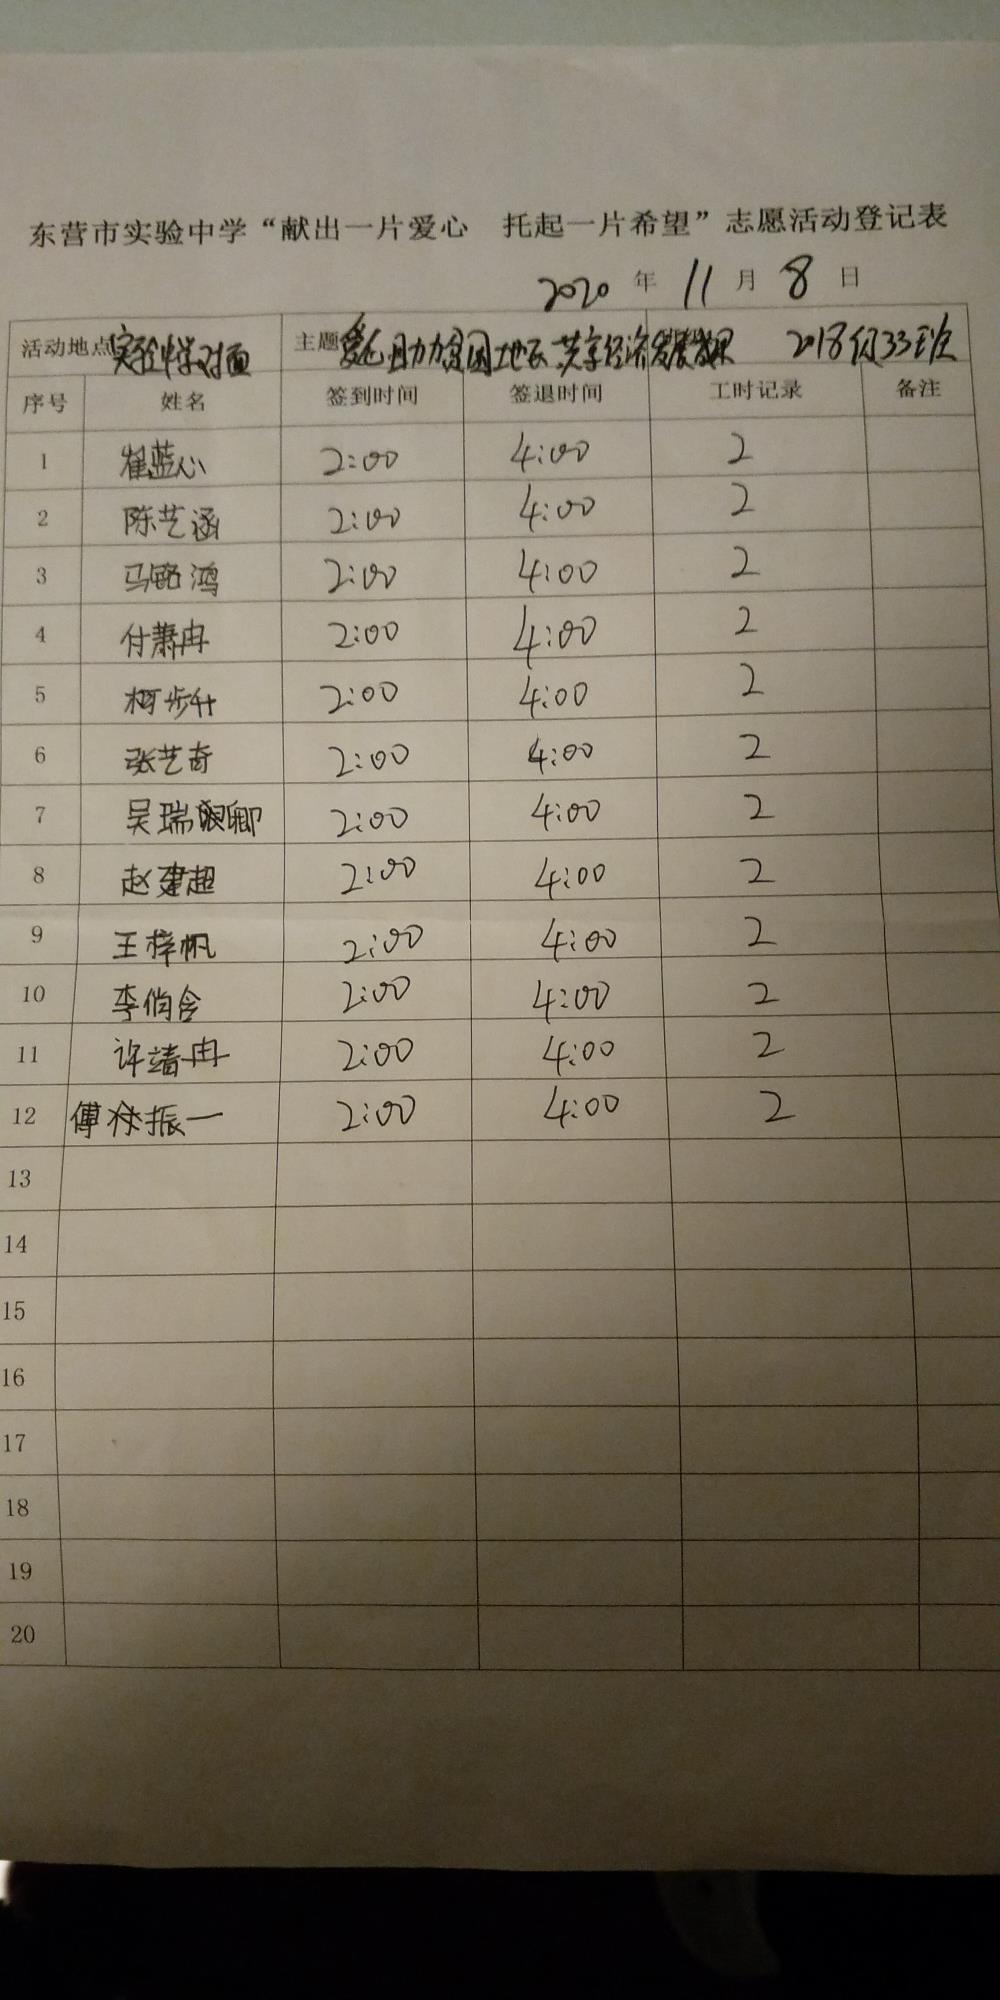 东营市实验中学“献出一片爱心 托起一片希望”志愿活动登记表
2020 年 11 月 8 日
活动地点 实验中学对面 主题 爱心助力贫困地区 共享经济发展 2018级33班
序号 姓名 签到时间 签退时间 工时记录 备注
1 崔蓝心 2:00 4:00 2
2 陈艺涵 2:00 4:00 2
3 马 鸿 2:00 4:00 2
4 付萧冉 2:00 4:00 2
5 柯步升 2:00 4:00 2
6 张艺奇 2:00 4:00 2
7 吴瑞卿 2:00 4:00 2
8 赵建超 2:00 4:00 2
9 王梓帆 2:00 4:00 2
10 李俏含 2:00 4:00 2
11 许靖冉 2:00 4:00 2
12 傅徐振一 2:00 4:00 2
13
14
15
16
17
18
19
20